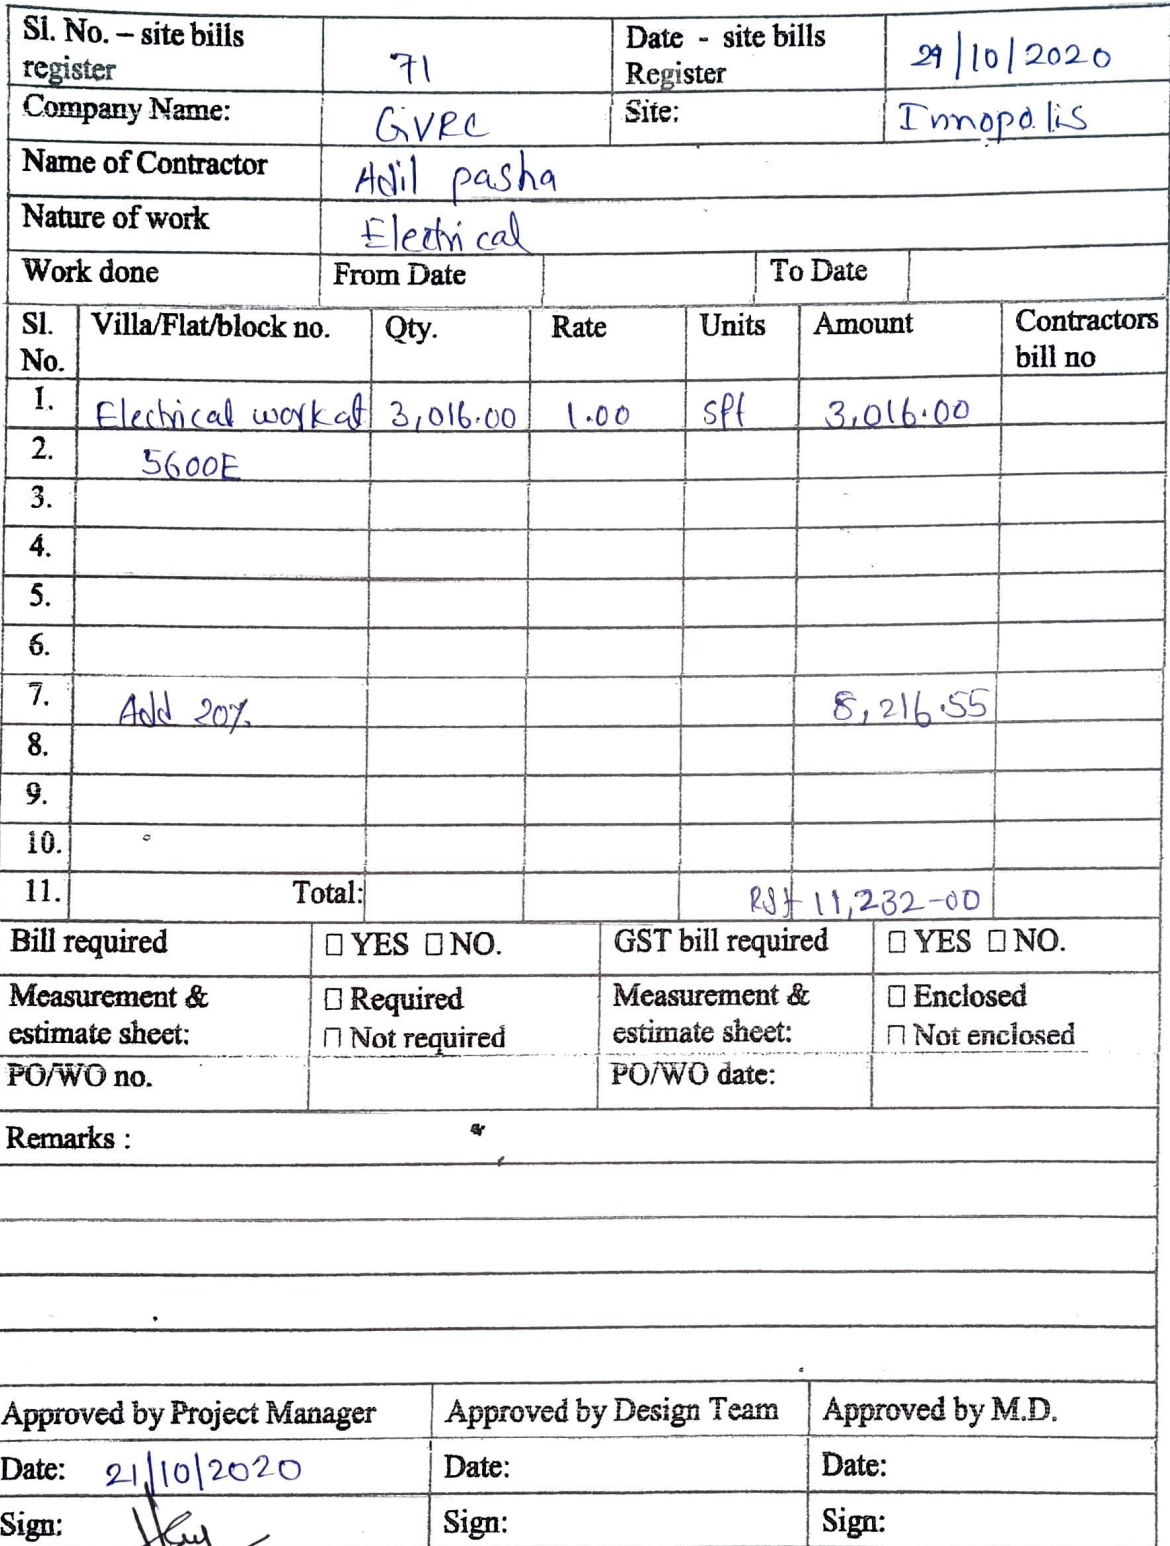 Sl. No. – site bills register 71 Date - site bills Register 29/10/2020
Company Name: GVRC Site: Innopolis
Name of Contractor Adil pasha
Nature of work Electrical
Work done From Date To Date
Sl. No. Villa/Flat/block no. Qty. Rate Units Amount Contractors bill no
1. Electrical work at 3,016.00 1.00 sft 3,016.00
2. 5600E
3.
4.
5.
6.
7. Add 20% 8,216.55
8.
9.
10.
11. Total: 11,232-00
Bill required □ YES □ NO. GST bill required □ YES □ NO.
Measurement & estimate sheet: □ Required □ Not required Measurement & estimate sheet: □ Enclosed □ Not enclosed
PO/WO no. PO/WO date:
Remarks :
Approved by Project Manager Approved by Design Team Approved by M.D.
Date: 21/10/2020 Date: Date:
Sign: Sign: Sign: